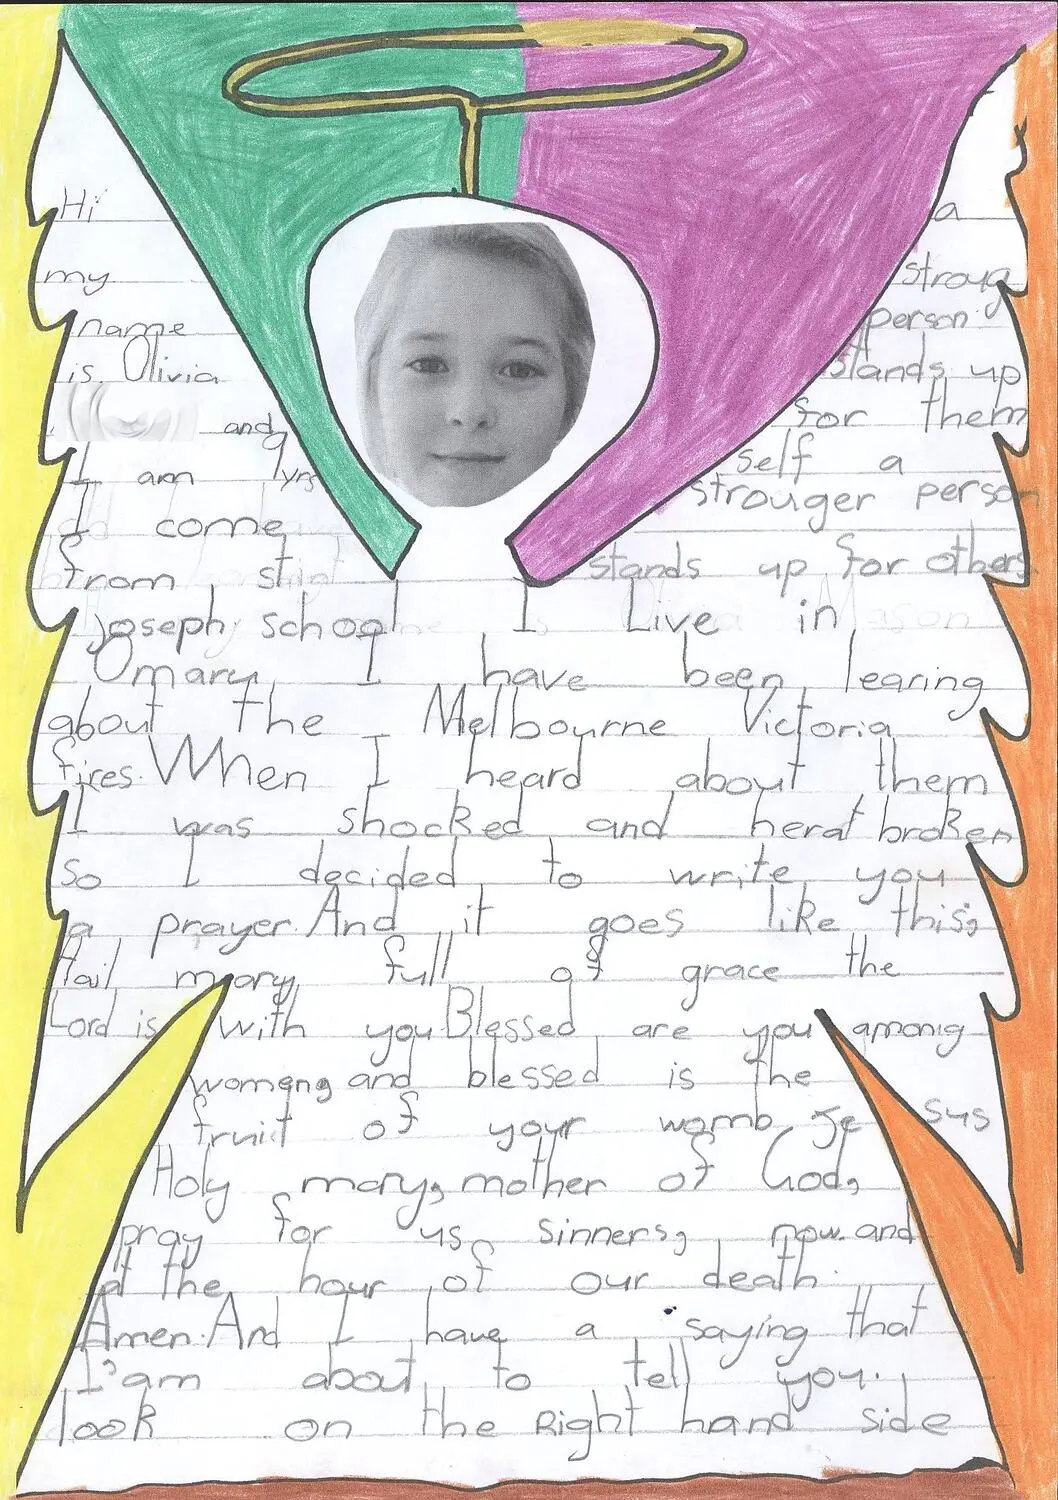 Hi
my
name
is Olivia
and
I am
I come
from st
joseph school I Live in
Omary I have been learing
about the Melbourne Victoria
fires. When I heard about them
I was shocked and herat broken
so I decided to write you
a prayer. And it goes like this,
Hail mary full of grace the
Lord is with you Blessed are you amonig
and blessed is the
fruit of your womb Je sus
Holy mary, mother of God,
pray for us sinners, now and
at the hour of our death.
Amen. And I have a saying that
I'am about to tell you.
look on the Right hand side
a
stroug
person
stands up
for them
self a
strouger person
stands up for others